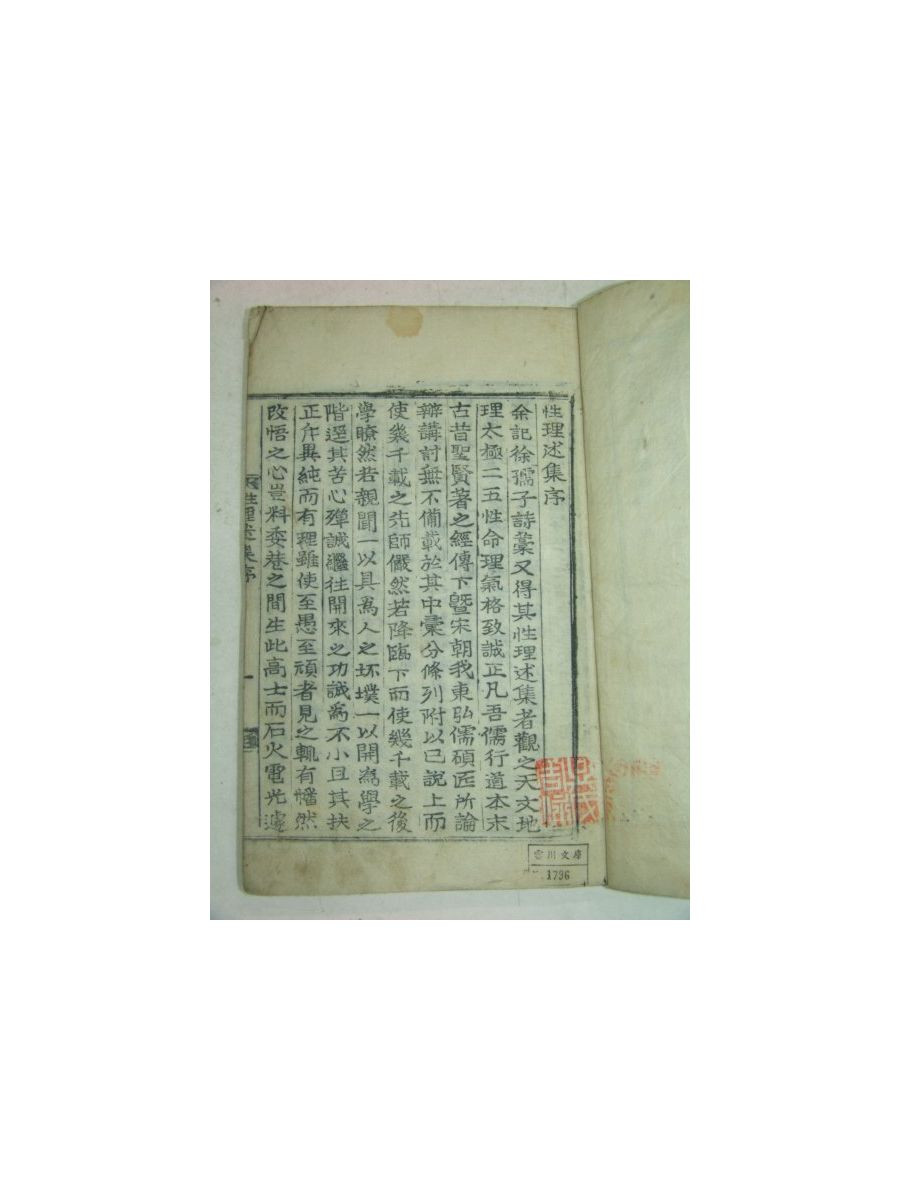 性理述集序
余記徐孺子詩藁又得其性理述集者觀之天文地
理太極二五性命理氣格致誠正凡吾儒行道本末
古昔聖賢著之經傳下曁宋朝我東弘儒碩匠所論
辨講討無不備載於其中彙分條列附以已說上而
使幾千載之先師儼然若降臨下而使幾千載之後
學瞭然若親聞一以具爲人之坏墣一以開爲學之
階逕其苦心殫誠繼往開來之功誠爲不小且其扶
正斥異純而有理雖使至愚至頑者見之輒有幡然
改悟之心豈料委巷之間生此高士而石火電光遽
性理述集序
一
川文庫
1736